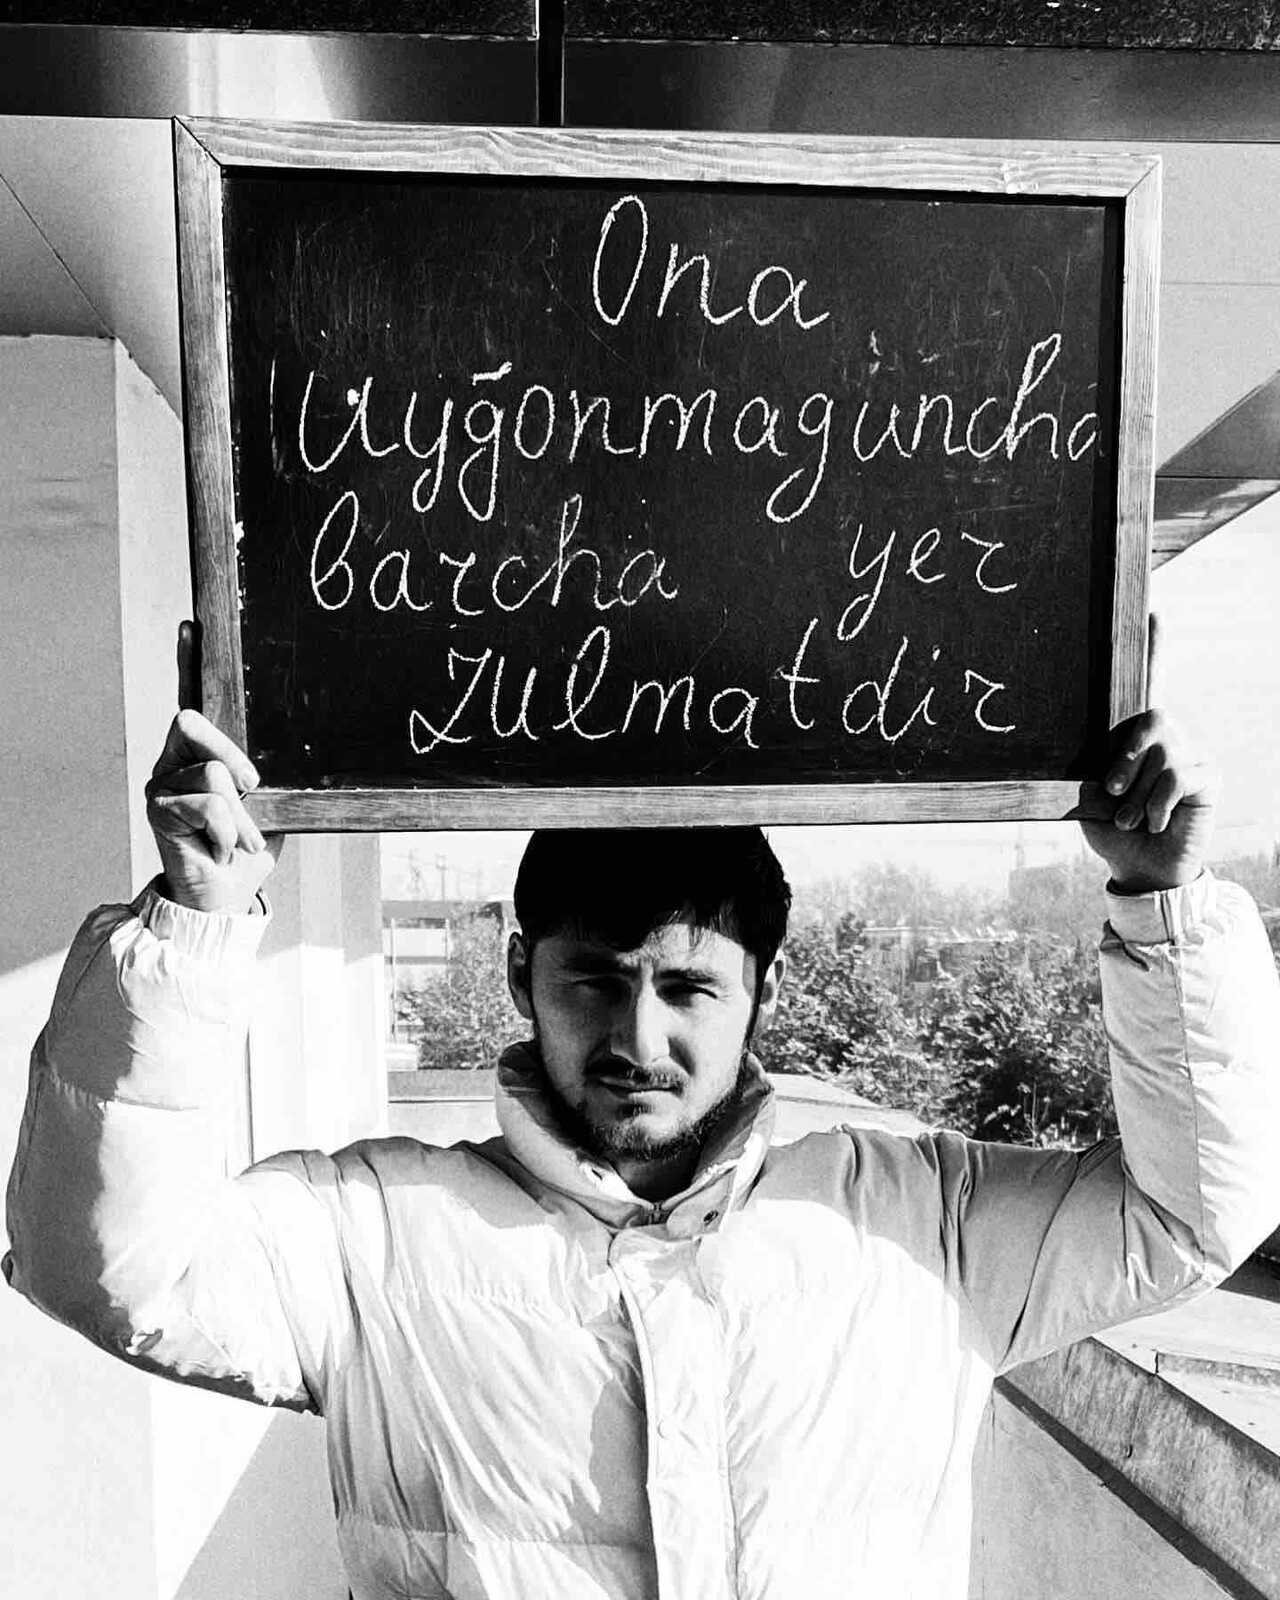 Ona
Uyğonmaguncha
barcha yer
zulmatdir